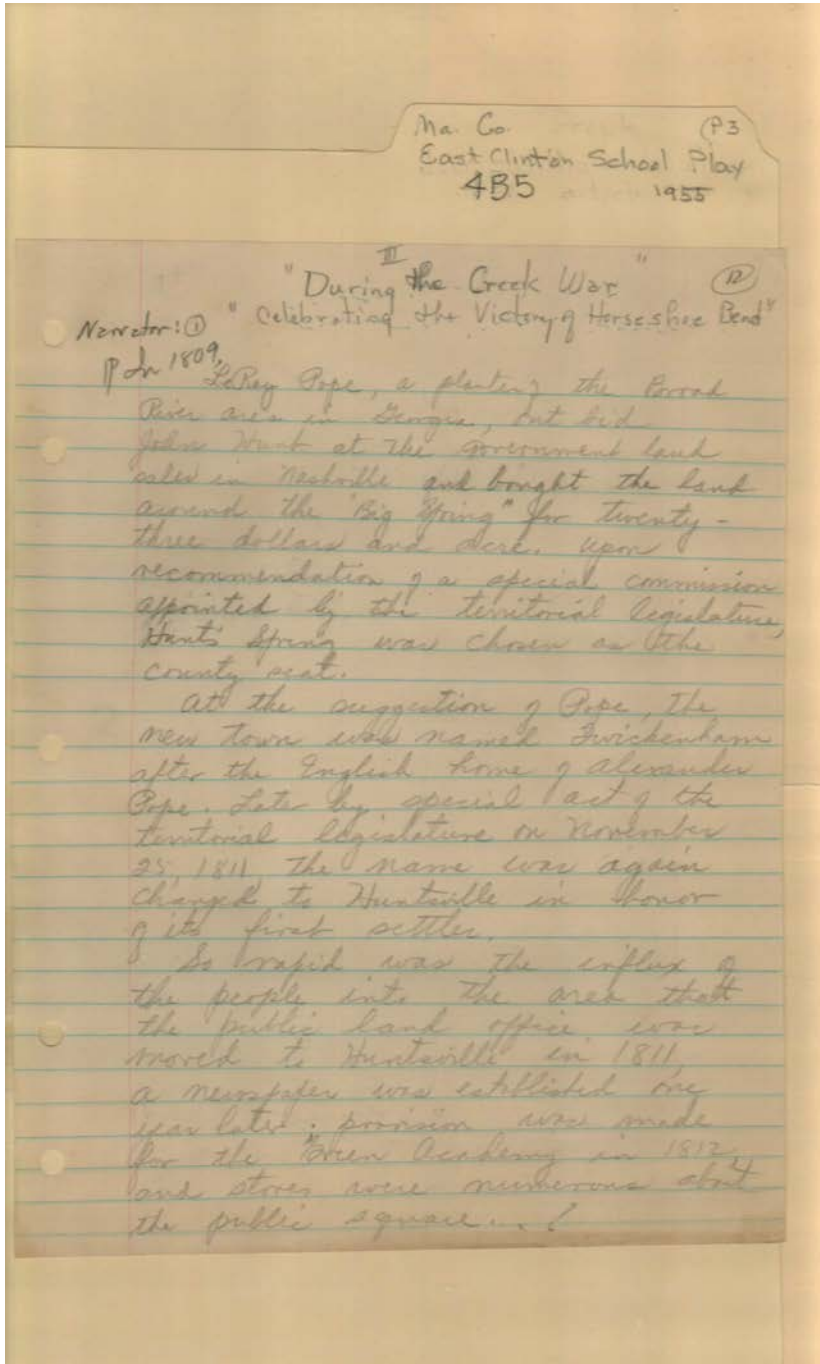 Ma. Co. (P3
East Clinton School Play
4B5 1955
III
"During the Creek War" (12)
Narrator: ① "Celebrating the Victory of Horseshoe Bend"
¶ In 1809,
LeRoy Pope, a planter of the Broad
River area in Georgia, out bid
John Hunt at the government land
sales in Nashville and bought the land
around the "Big Spring" for twenty-
three dollars and acre. Upon
recommendation of a special commission
appointed by the territorial legislature,
Hunt's Spring was chosen as the
county seat.
At the suggestion of Pope, the
new town was named Twickenham
after the English home of Alexander
Pope. Later by special act of the
territorial legislature on November
25, 1811, the name was again
changed to Huntsville in honor
of its first settler.
So rapid was the influx of
the people into the area that
the public land office was
moved to Huntsville in 1811,
a newspaper was established one
year later; provision was made
for the Green Academy in 1812,
and stores were numerous about
the public square...